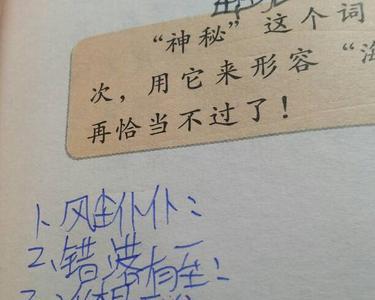 “神秘”这个词
次，用它来形容“海
再恰当不过了！
1、风尘仆仆：
2、错落有至：